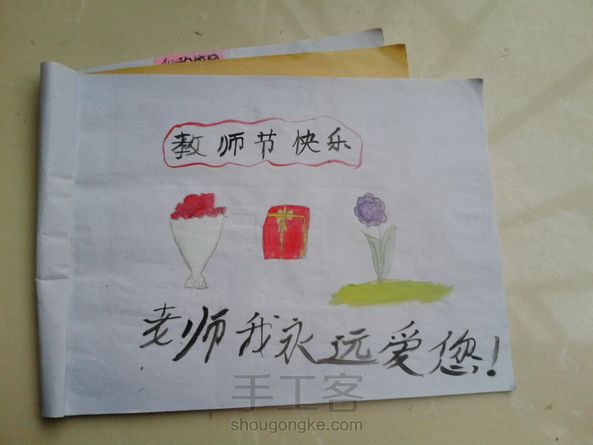 教师节快乐
老师我永远爱您！
手工客
shougongke.com